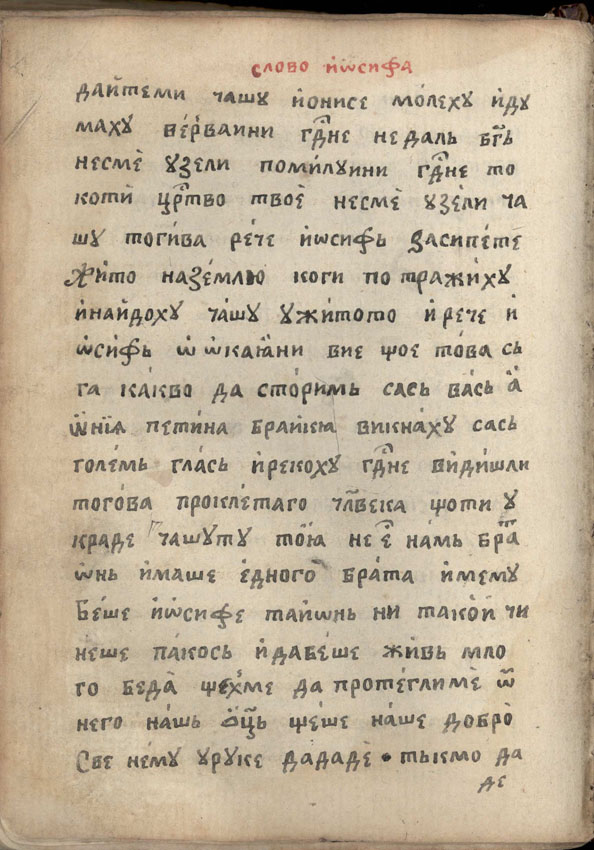 слово іѡсифа
дайтеми чашу йонисе молеху йду
маху верваини гдⷭ҇не недаль бг҃ь
несме узели помилуини гдⷭ҇не то
коти црⷭ҇тво твое несме узели ча
шу тогива рече йѡсифь засипете
жито наземлю коги потражиху
йнайдоху чашу ужитото йрече й
ѡсифь ѡ ѡкаꙗни вие що е това сь
га какво да сторимь сась вась а
ѡнїа петина браикꙗ викнаху сась
големь глась йрекоху гдⷭ҇не видишли
тогова проклетаго чл҃века щоти у
краде чашуту тоꙗ не е намь брать
ѡнь имаше едного брата имему
беше йѡсифе тайѡнь ни такой чи
неше пакось йдабеше живь мло
го беда щехме да протеглиме ѿ
него нашь ѡц҃ь щеше наше добро
све нему уруке дададе • тыкмо да
де